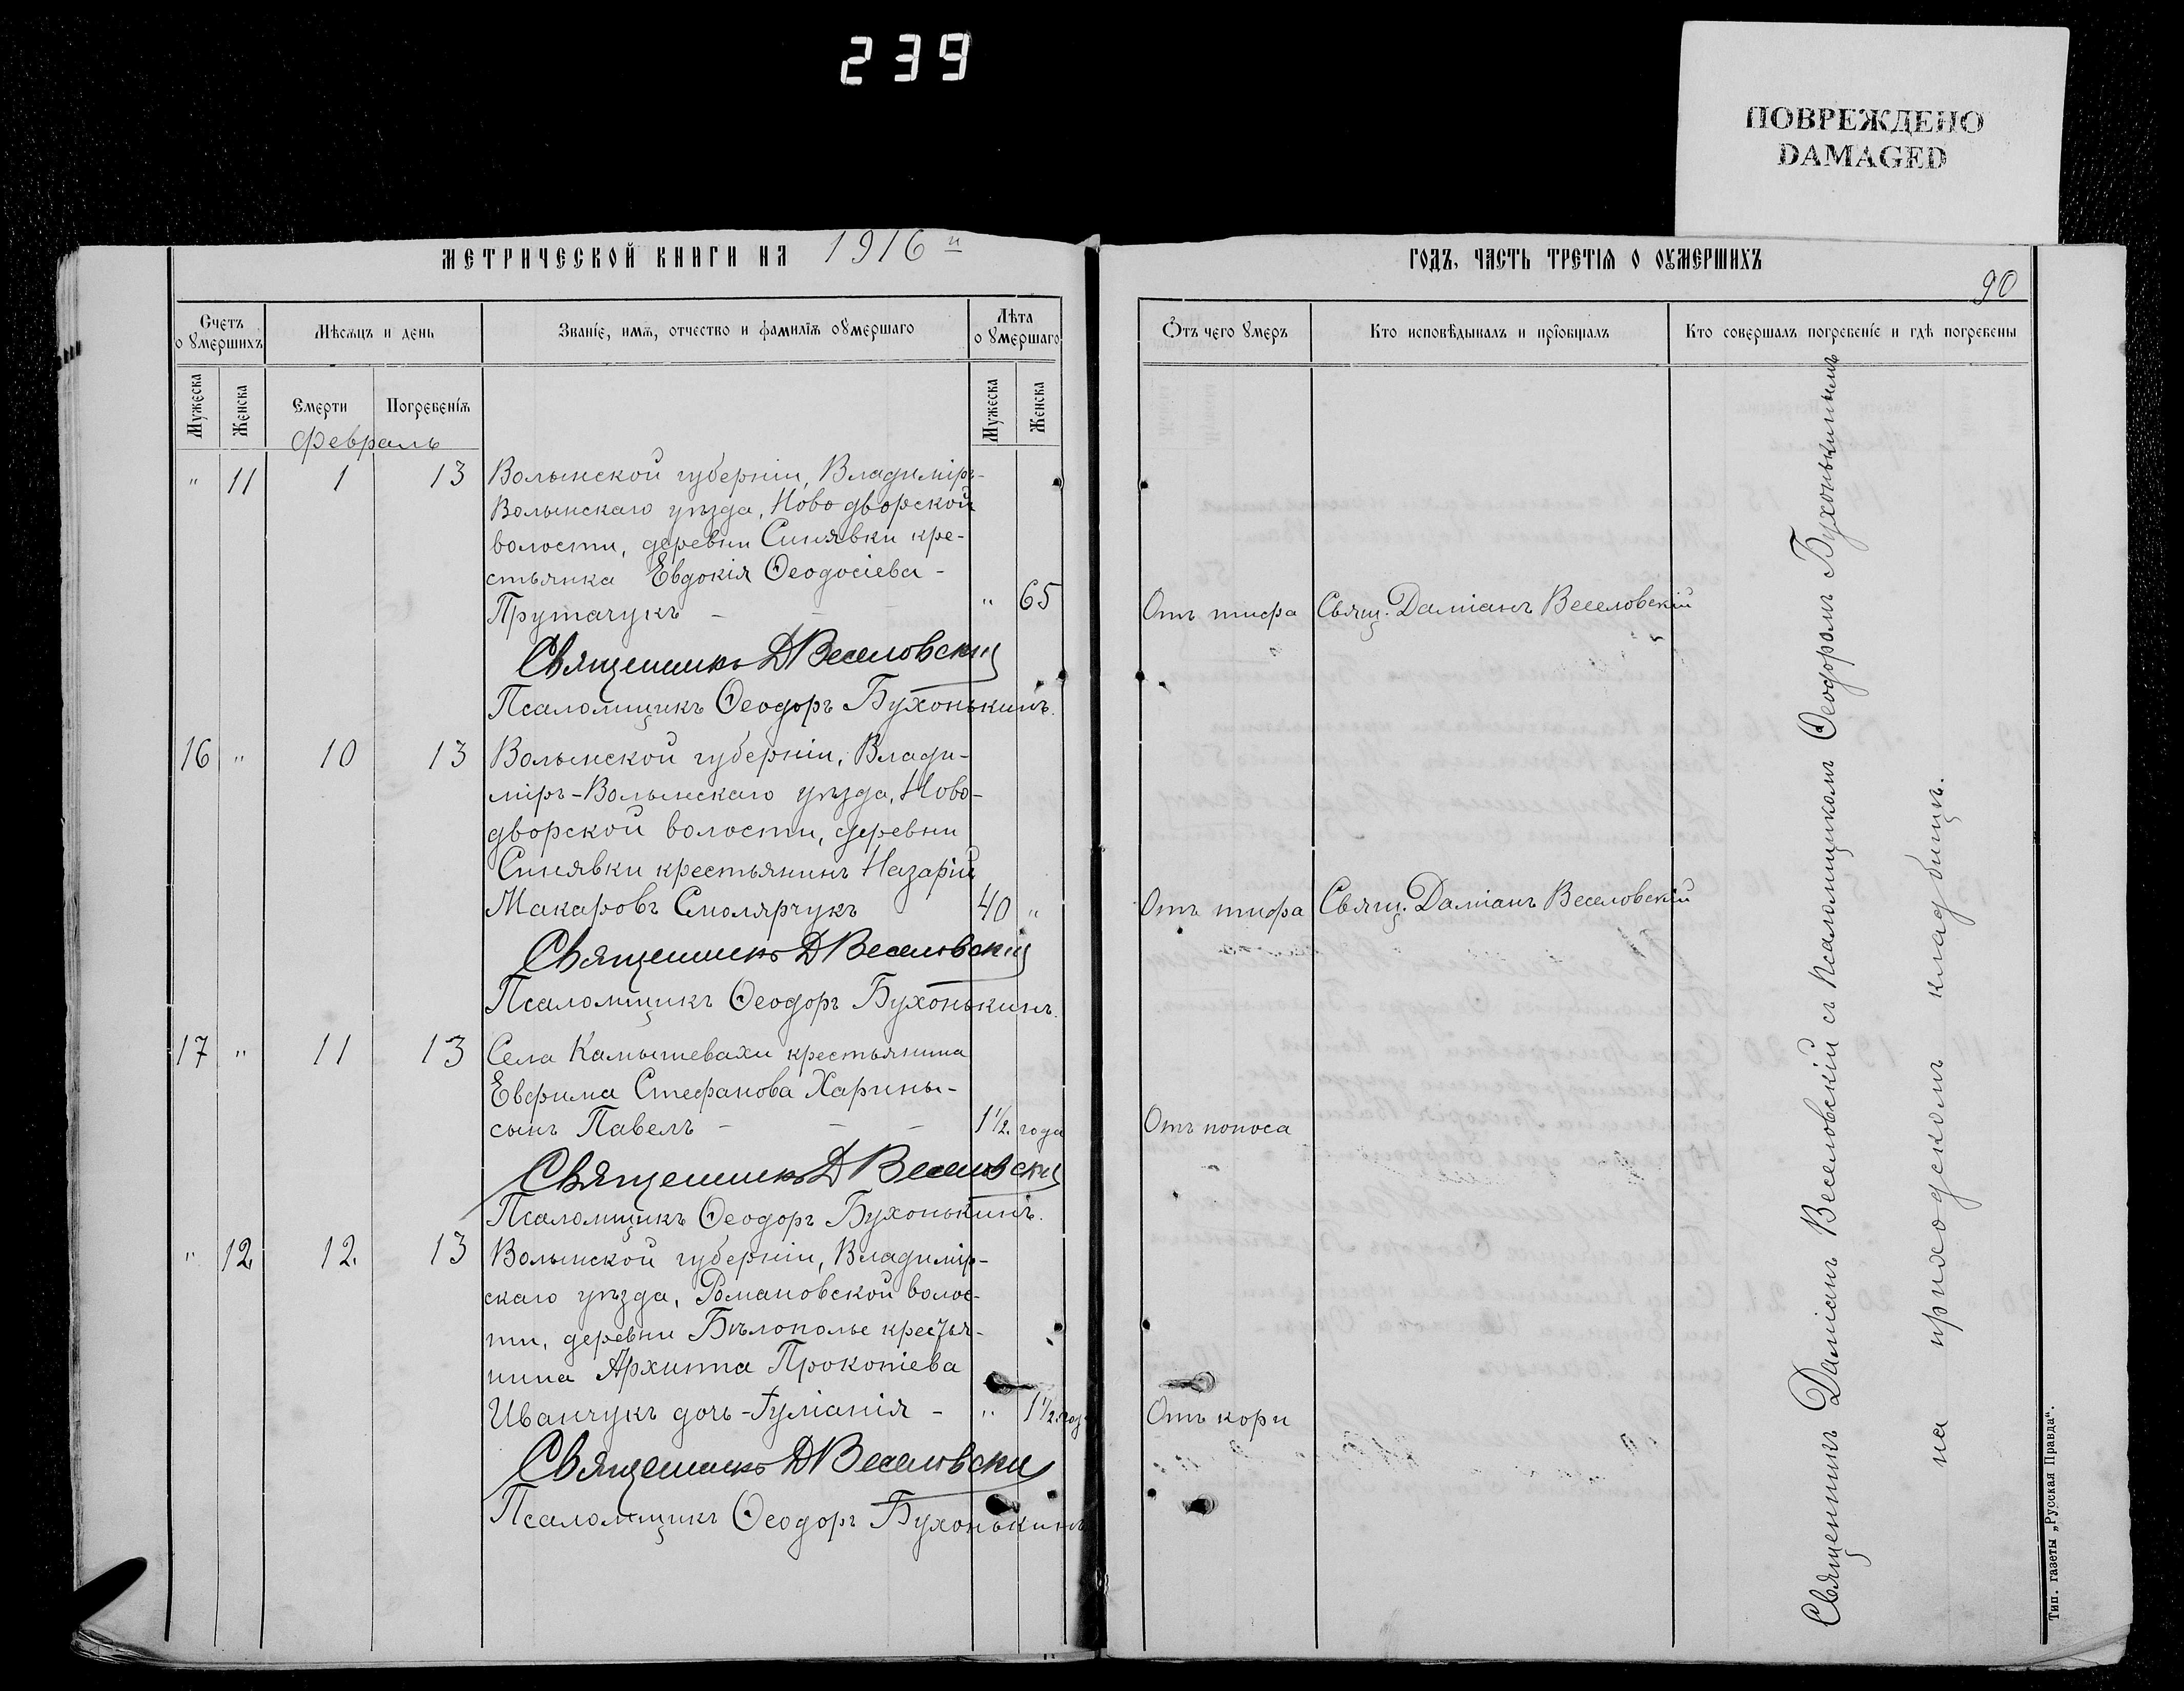 239
ПОВРЕЖДЕНО
DAMAGED
МЕТРИЧЕСКОЙ КНИГИ НА 1916 й
Счетъ о умершихъ
Мѣсяцъ и день
Званіе, имя, отчество и фамилія умершаго
Лѣта о умершаго
Мужеска
Женска
Смерти
Погребенія
Мужеска
Женска
Февраль
" 11 1 13 Волынской губерніи, Владимір-
Волынскаго уѣзда, Новодворской
волости, деревни Синявки кре-
стьянка Евдокія Ѳеодосіева -
Прутачукъ - - - " 65
Священникъ Д Веселовскій
Псаломщикъ Ѳеодоръ Бухонькинъ.
16 " 10 13 Волынской губерніи, Влади-
міръ-Волынскаго уѣзда, Ново-
дворской волости, деревни
Синявки крестьянинъ Назарій
Макаровъ Смолярчукъ 40 "
Священникъ Д Веселовскій
Псаломщикъ Ѳеодоръ Бухонькинъ.
17 " 11 13 Села Камышевахи крестьянина
Евфима Стефанова Харины-
сынъ Павелъ - - - 1 1/2. года
Священникъ Д Веселовскій
Псаломщикъ Ѳеодоръ Бухонькинъ.
" 12. 12. 13 Волынской губерніи, Владимір-
скаго уѣзда, Романовской волос-
ти, деревни Бѣлополье крестья-
нина Архиппа Прокопіева
Иванчукъ дочь - Іуліанія - " 1 1/2. год
Священникъ Д Веселовскій
Псаломщикъ Ѳеодоръ Бухонькинъ
ГОДЪ, ЧАСТЬ ТРЕТІЯ О ОУМЕРШИХЪ
90
Отъ чего умеръ
Кто исповѣдывалъ и пріобщалъ
Кто совершалъ погребеніе и гдѣ погребены
Отъ тифа Свящ. Даміанъ Веселовскій
Отъ тифа Свящ. Даміанъ Веселовскій
Отъ поноса
Отъ кори
Священникъ Даміанъ Веселовскій съ псаломщикомъ Ѳеодоромъ Бухонькинымъ
на приходскомъ кладбищѣ.
Тип. газеты „Русская Правда".